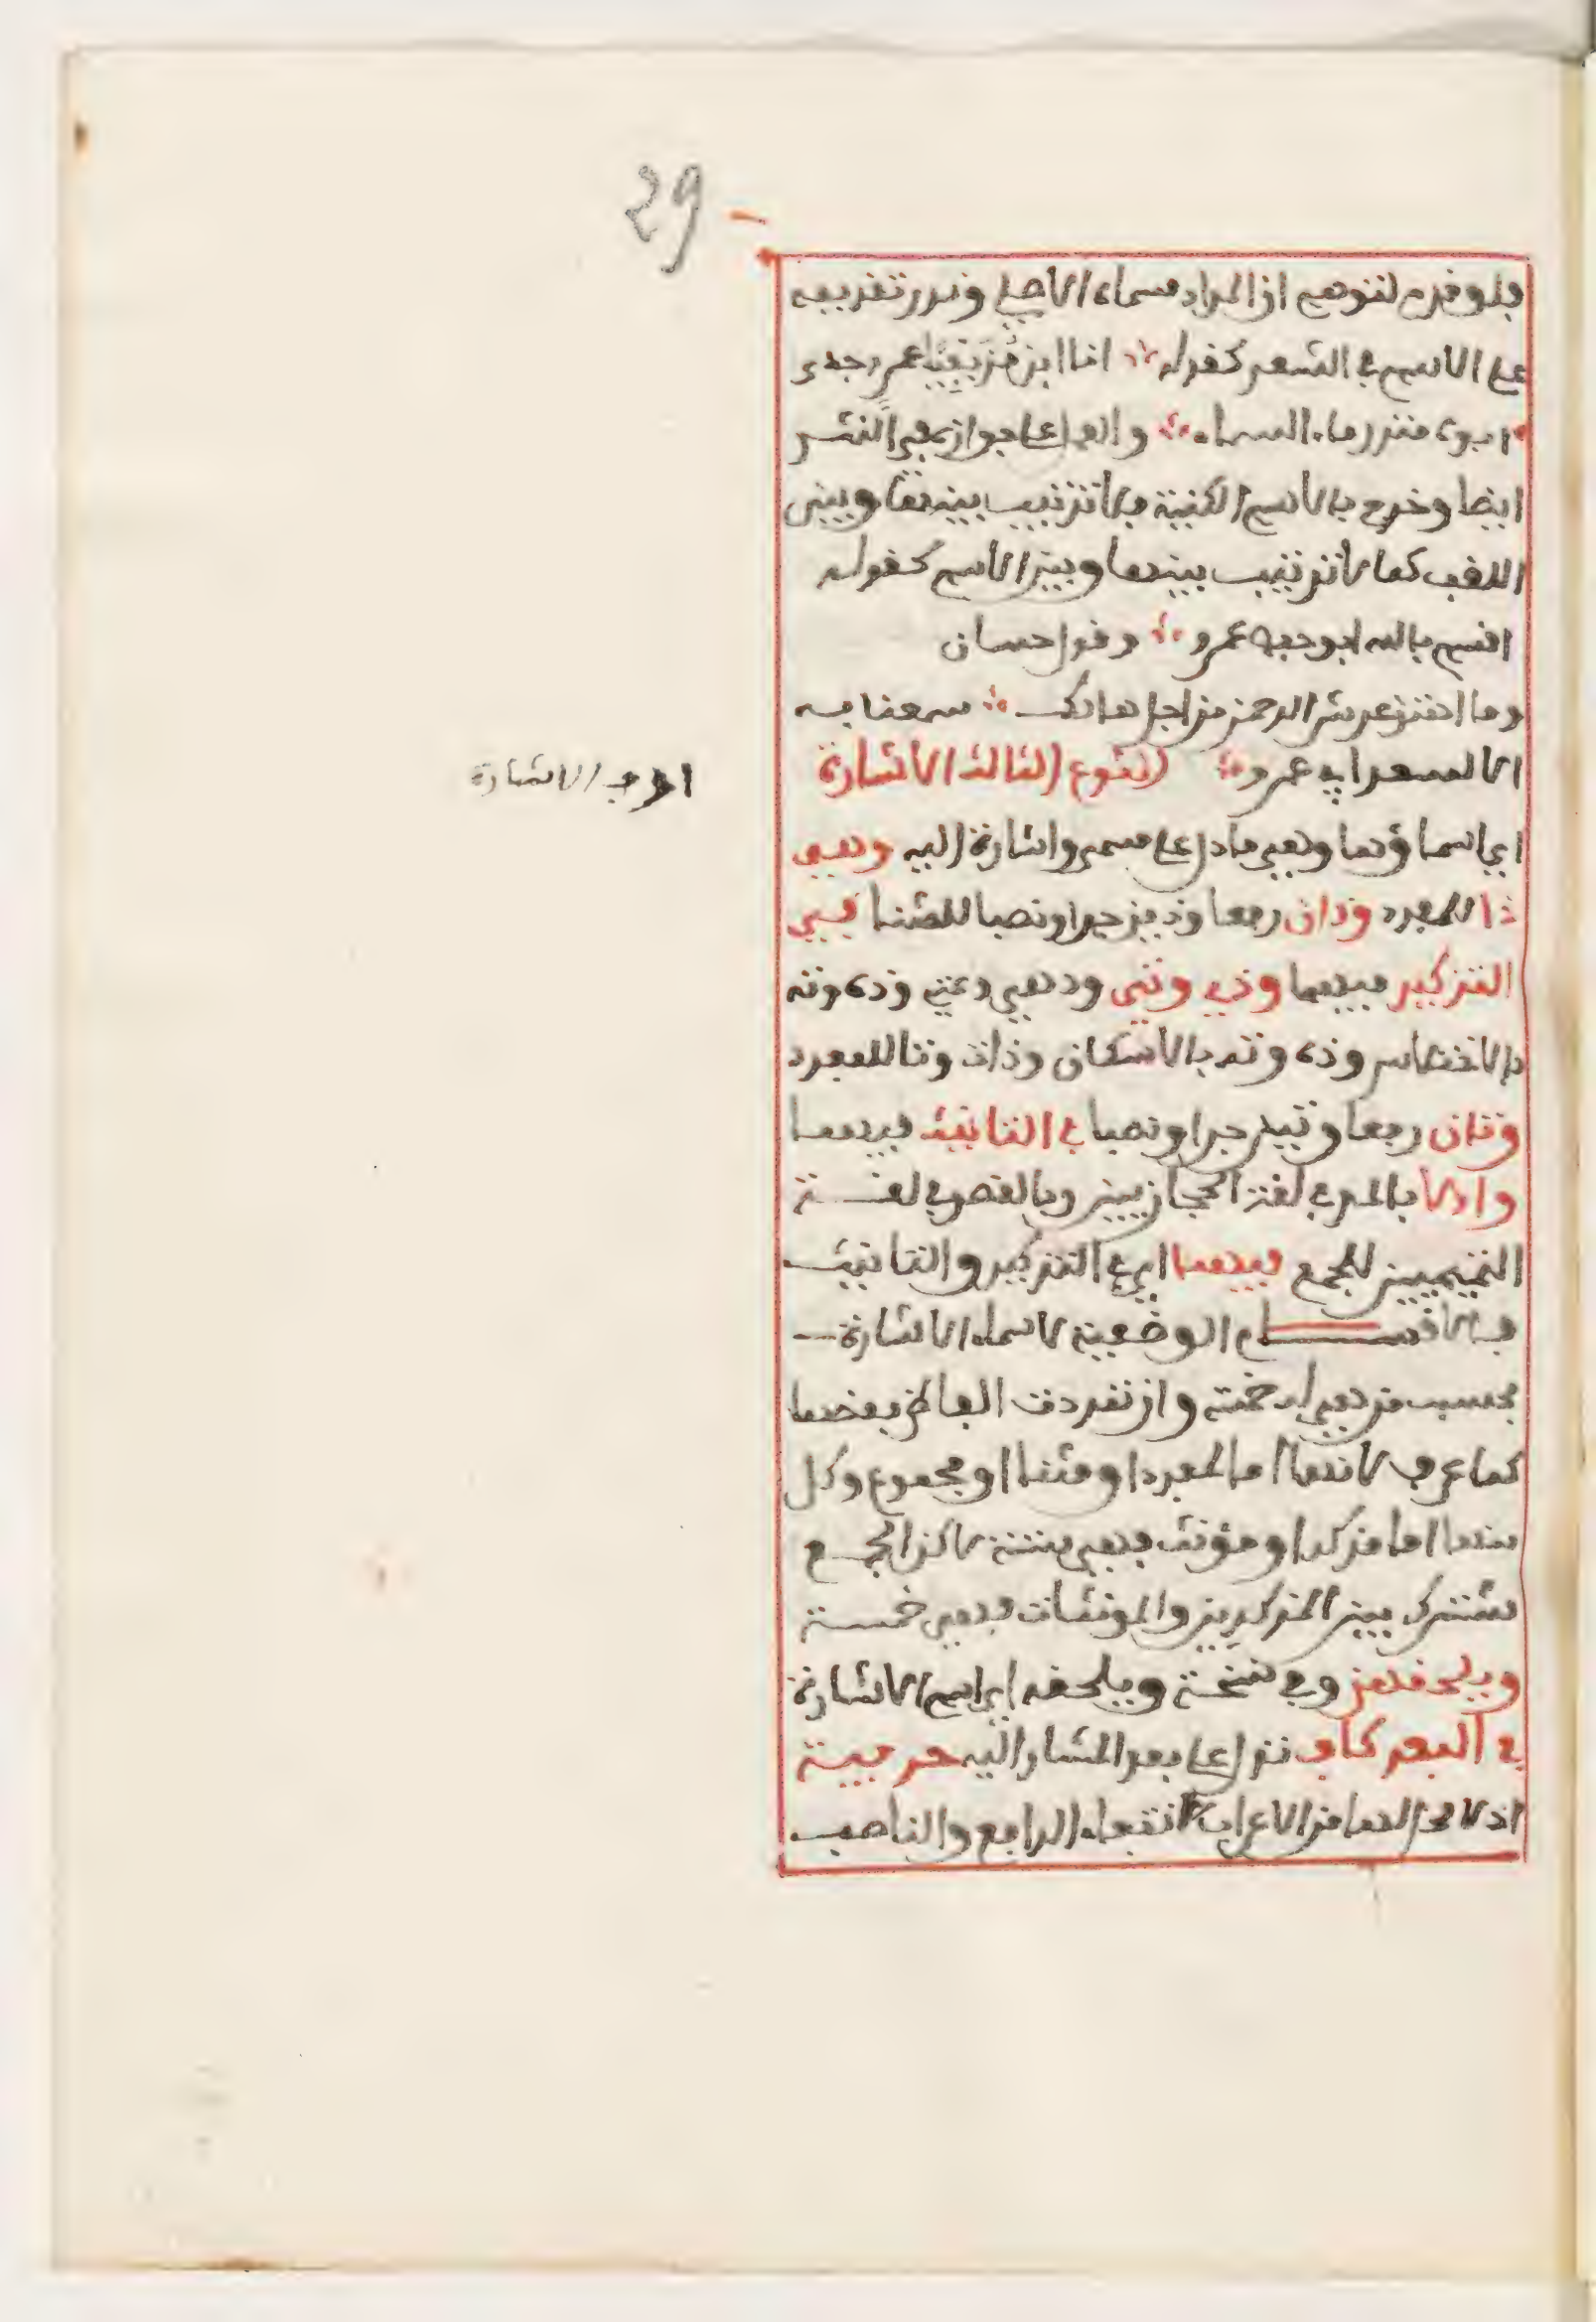 29
فلو قدم لتوهم ان المراد مسماه الاصلي وندر تقديمه
على الاسم في الشعر كقوله انا ابن مزيقيا عمرو وجدي
ابوه منذر ماء السماء والعواءجواز في النثر
ايضا وخرج بالاسم الكنية فلا ترتيب بينها وبين
اللقب كما لا ترتيب بينها وبين الاسم كقوله
اقسم بالله ابو حفص عمر وقول حسان
وما اهتز عرش الرحمن من اجل هالك سمعنا به
الا لسعد ابي عمرو النوع الثالث الاشارة
الاشارة
اي اسماؤها وهي ما دل على مسمى واشارة اليه وهي
ذا للمفرد وذان رفعا وذين جرا ونصبا للمثنا في
التذكير فيهما وذي وتي وذهي وتهي وذه وته
بالاختلاس وذه وته بالاسكان وذات وتا للمفرد
وتان رفعا وتين جرا ونصبا في التانيث فيهما
واولا بالمد في لغة الحجازيين وبالقصر في لغة
التميميين للجمع فيهما اي في التذكير والتانيث
فالاقسام الوضعية لاسماء الاشارة
بحسب من هي له خمسة وان تعددت الفاظ بعضها
كما عرف لانها اما لمفرد او مثنا او مجموع وكل
منها اما مذكر او مؤنث فهي ستة لاكن الجمع
مشترك بين المذكرين والمونثات فهي خمسة
ويلحقهن وفي نسخة ويلحقه اي اسم الاشارة
في البعد كاف تدل على بعد المشار اليه حرفية
اذ لا محل لها من الاعراب لانتفاء الرافع والناصب